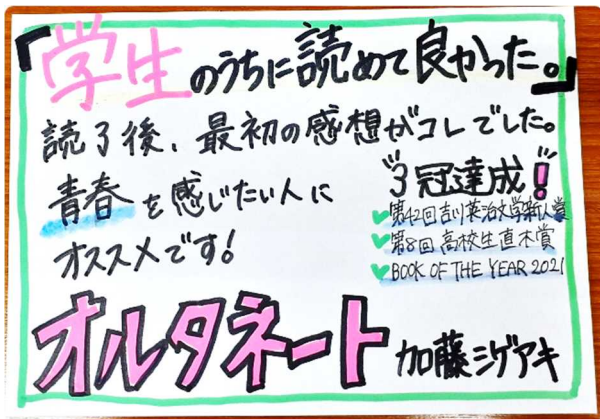 「学生のうちに読めて良かった。」
読了後、最初の感想がコレでした。
青春を感じたい人に
オススメです!
"3冠達成!
第42回吉川英治文学新人賞
第8回高校生直木賞
BOOK OF THE YEAR 2021
オルタネート 加藤シゲアキ